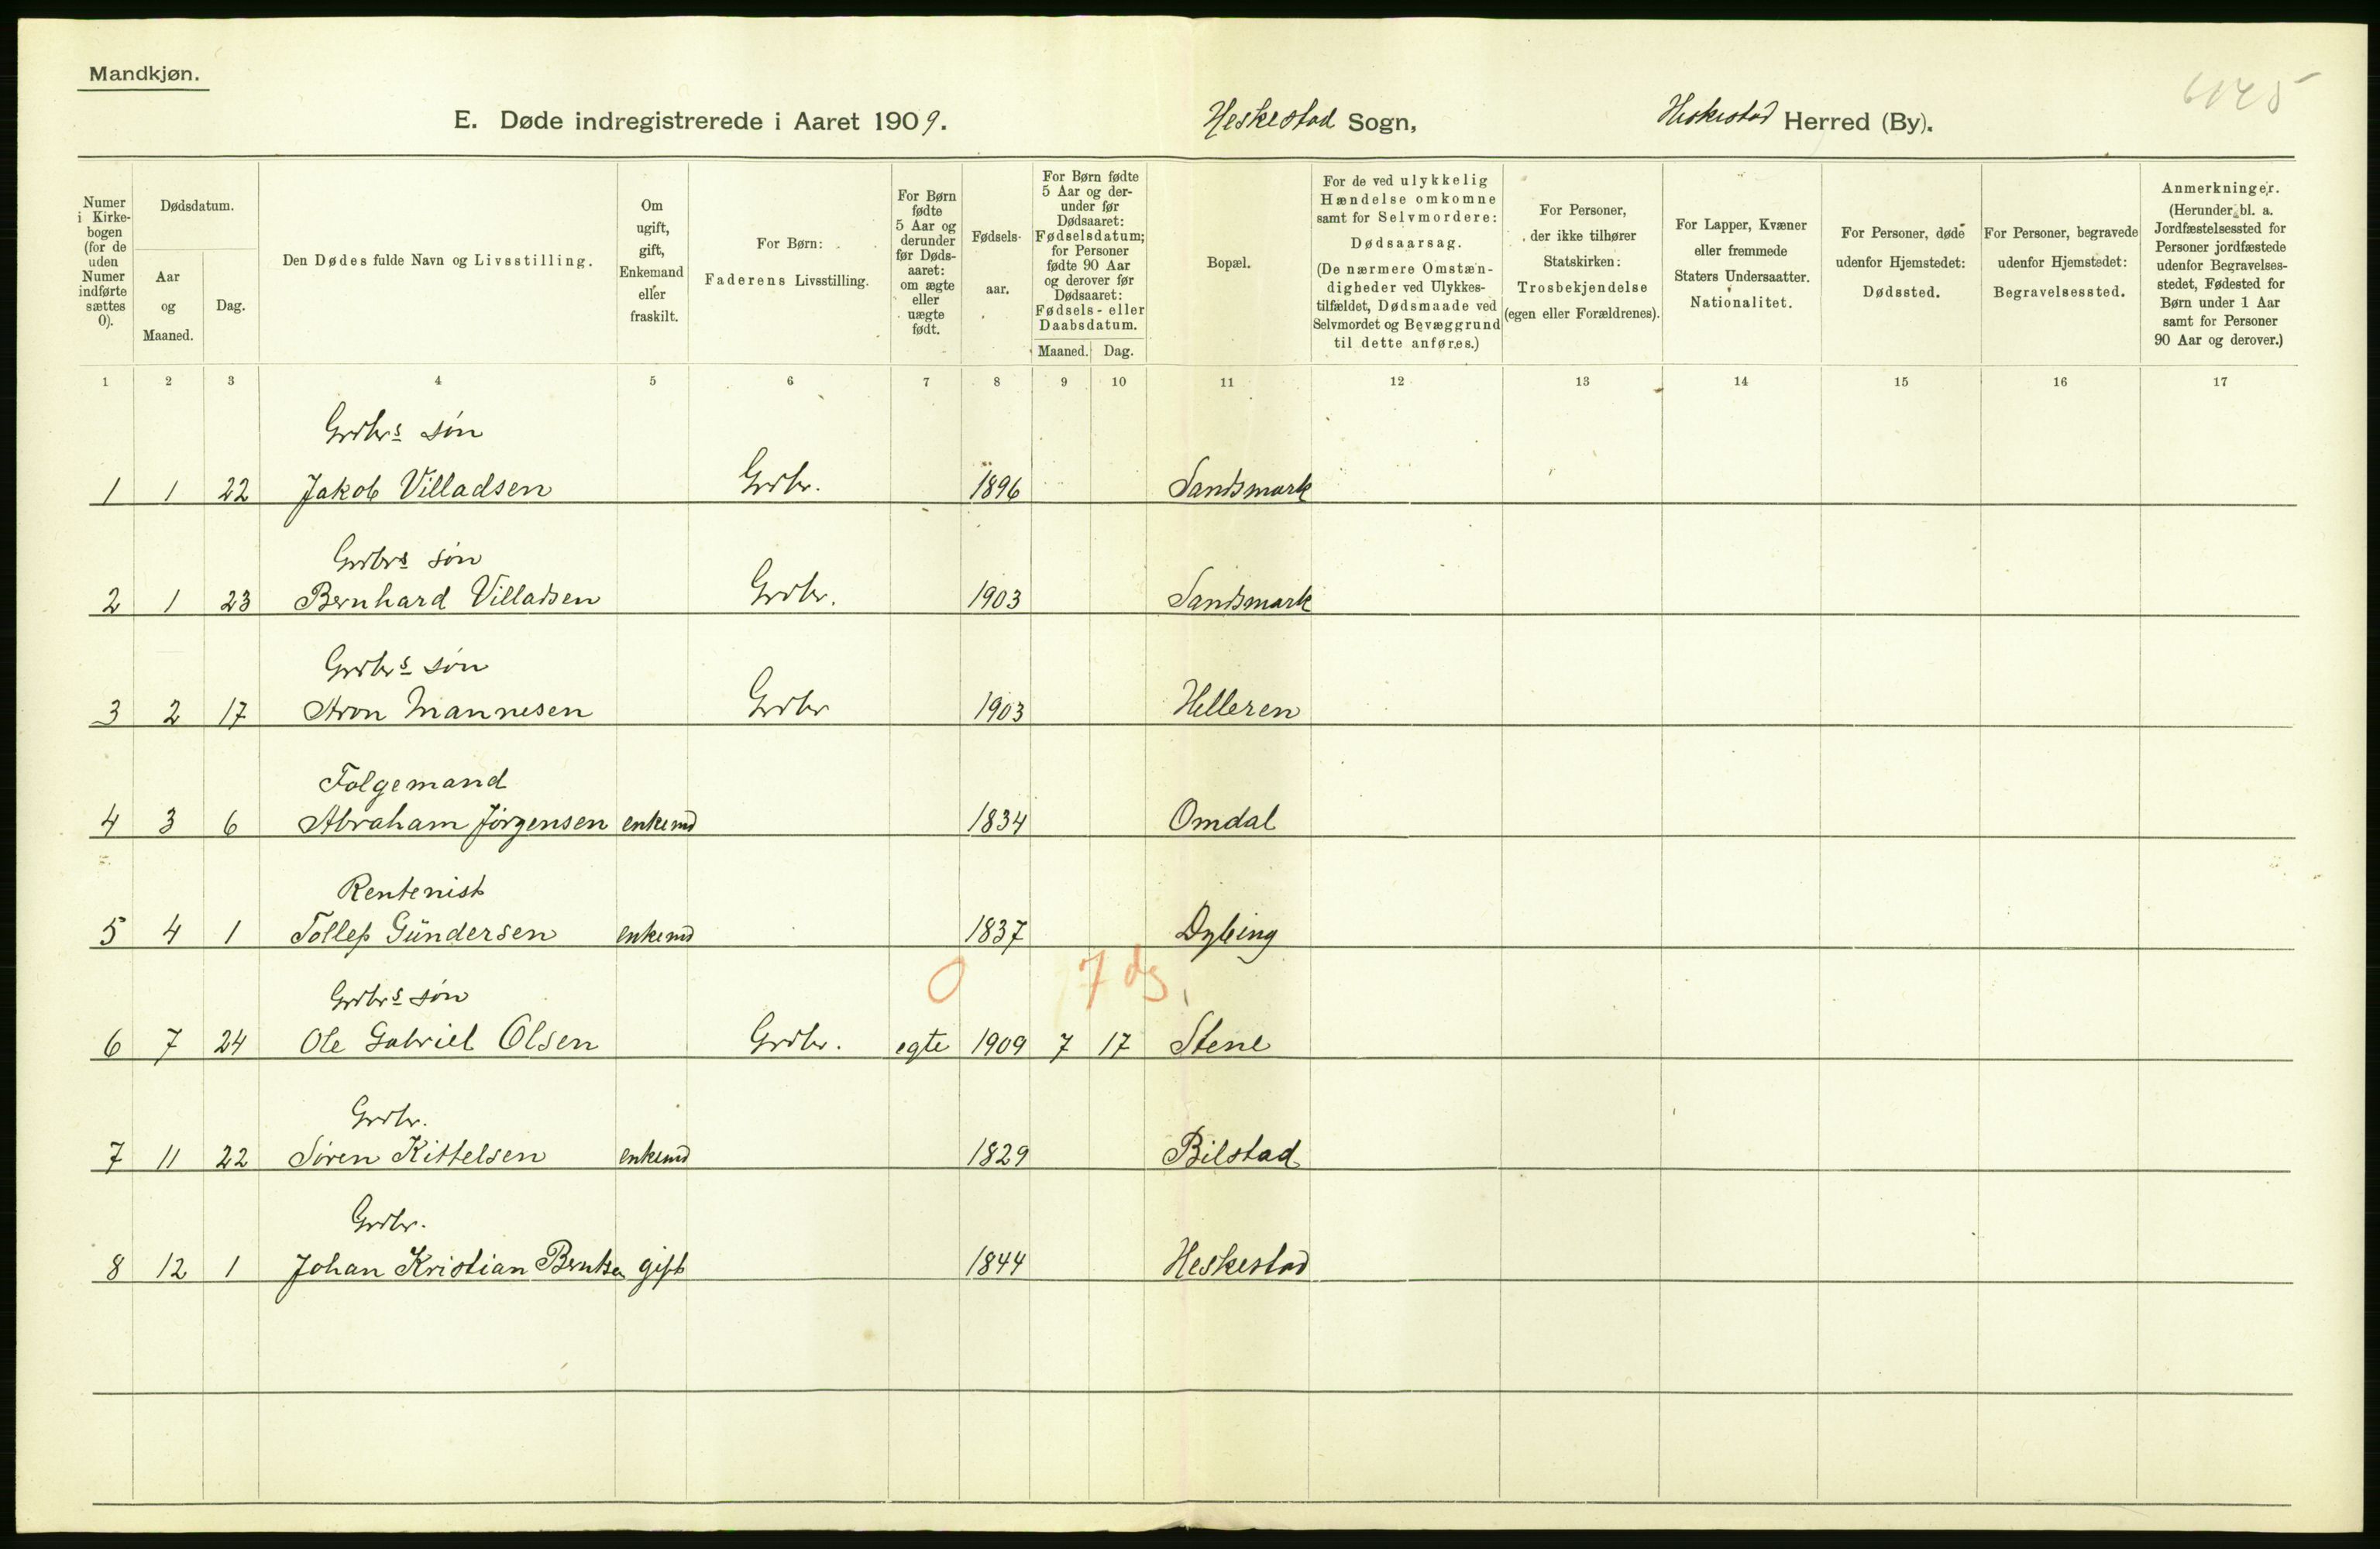 Mandkjøn.
E. Døde indregistrerede i Aaret 1909. Heskestad Sogn, Heskestad Herred (By).
Numer i Kirkebogen (for de uden Numer indførte sættes 0).
Dødsdatum.
Aar og Maaned.
Dag.
Den Dødes fulde Navn og Livsstilling.
Om ugift, gift, Enkemand eller fraskilt.
For Børn: Faderens Livsstilling.
For Børn fødte 5 Aar og derunder før Dødsaaret: om ægte eller uægte født.
Fødselsaar.
For Børn fødte 5 Aar og derunder før Dødsaaret: Fødselsdatum; for Personer fødte 90 Aar og derover før Dødsaaret: Fødsels- eller Daabsdatum.
Maaned. Dag.
Bopæl.
For de ved ulykkelig Hændelse omkomne samt for Selvmordere: Dødsaarsag. (De nærmere Omstændigheder ved Ulykkestilfældet, Dødsmaade ved Selvmordet og Bevæggrund til dette anføres.)
For Personer, der ikke tilhører Statskirken: Trosbekjendelse (egen eller Forældrenes).
For Lapper, Kvæner eller fremmede Staters Undersaatter. Nationalitet.
For Personer, døde udenfor Hjemstedet: Dødssted.
For Personer, begravede udenfor Hjemstedet: Begravelsessted.
Anmerkninger. (Herunder bl. a. Jordfæstelsessted for Personer jordfæstede udenfor Begravelsesstedet, Fødested for Børn under 1 Aar samt for Personer 90 Aar og derover.)
1 2 3 4 5 6 7 8 9 10 11 12 13 14 15 16 17
Grdbrs søn
1 1 22 Jakob Villadsen Grdbr. 1896 Sandsmark
Grdbrs søn
2 1 23 Bernhard Villadsen Grdbr. 1903 Sandsmark
Grdbrs søn
3 2 17 Aron Mannesen Grdbr 1903 Helleren
Folgemand
4 3 6 Abraham Jørgensen enkemd 1834 Omdal
Rentenist
5 4 1 Tollef Gündersen enkemd 1837 Dybing
0 7 dg
Grdbrs søn
6 7 24 Ole Gabriel Olsen Grdbr. egte 1909 7 17 Stene
Grdbr.
7 11 22 Søren Kittelsen enkemd 1829 Bilstad
Grdbr.
8 12 1 Johan Kristian Berntsen gift 1844 Heskestad